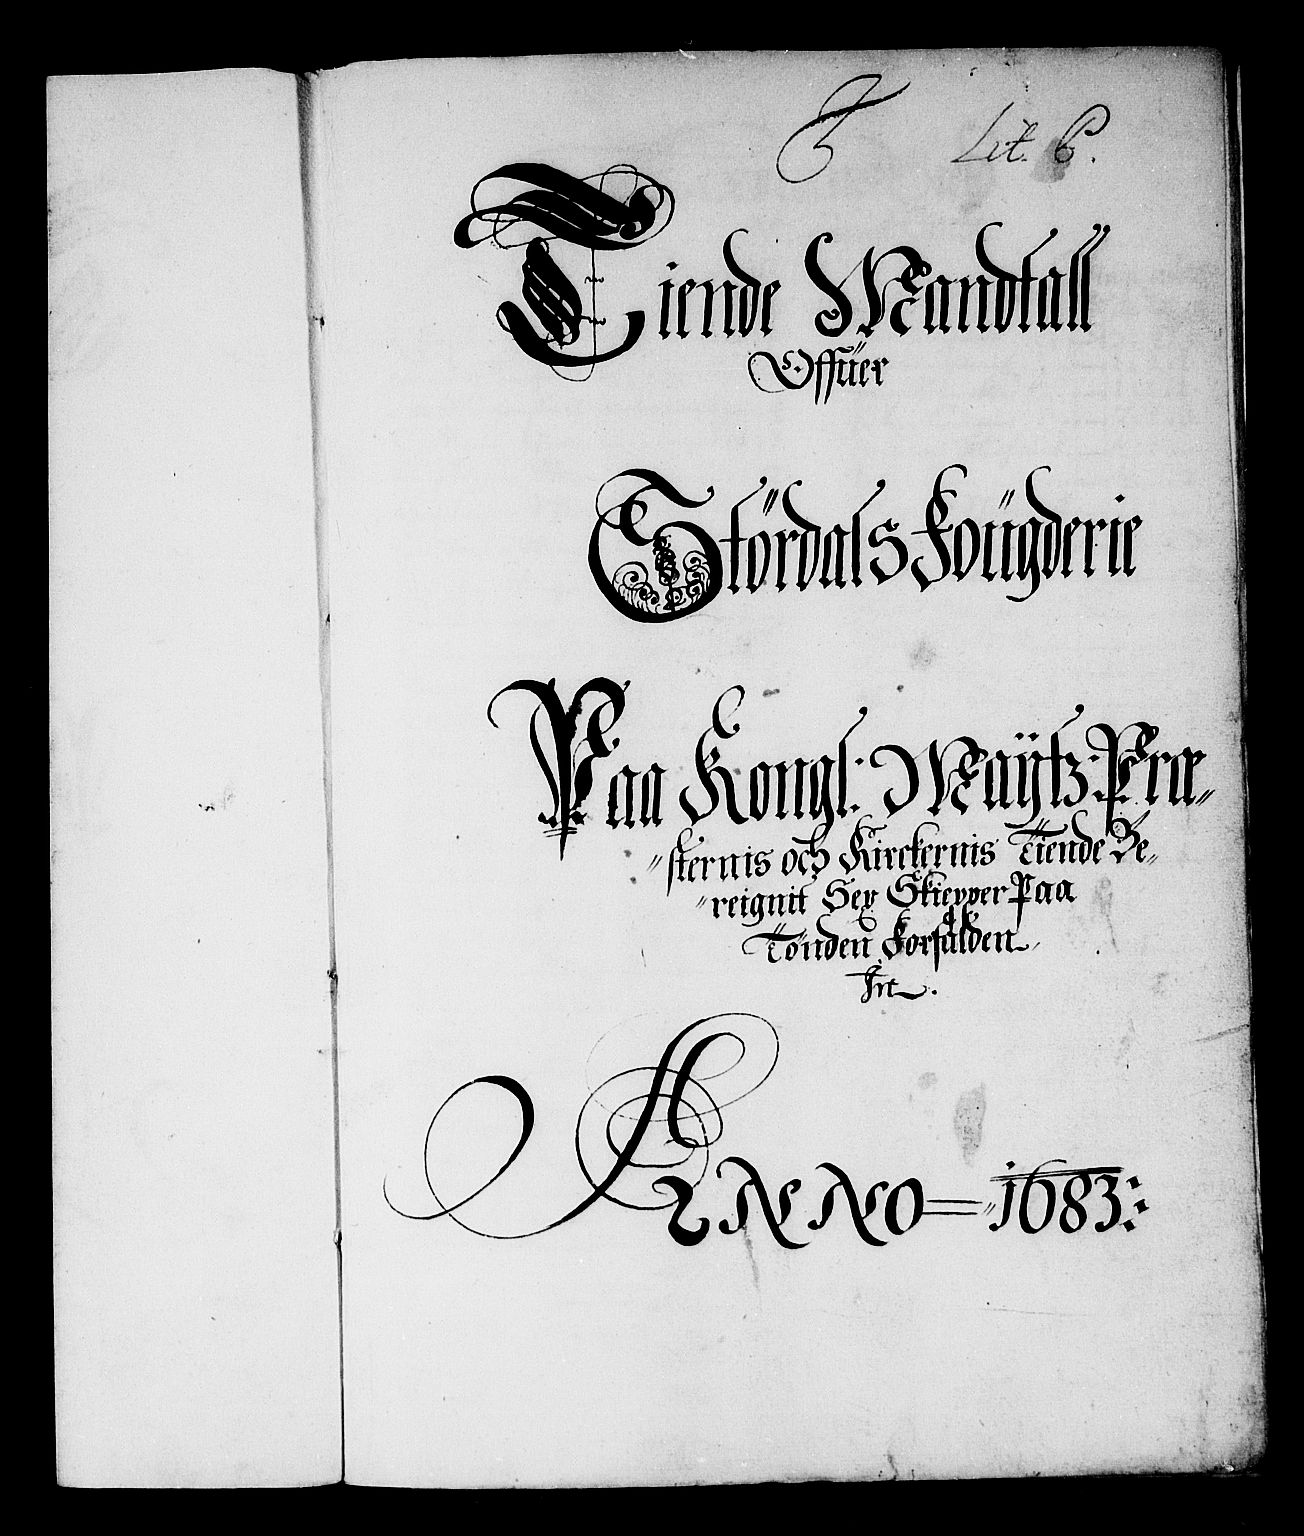 Lit. C.
Tiende Mandtall
Offüer
Stördals Foügderie
Paa Kongl: Maÿtz: Præ=
=sternis och Kirckernis Tiende Be=
=reignit Sex Skiepper Paa
Tønden Forfalden
Anno = 1683: